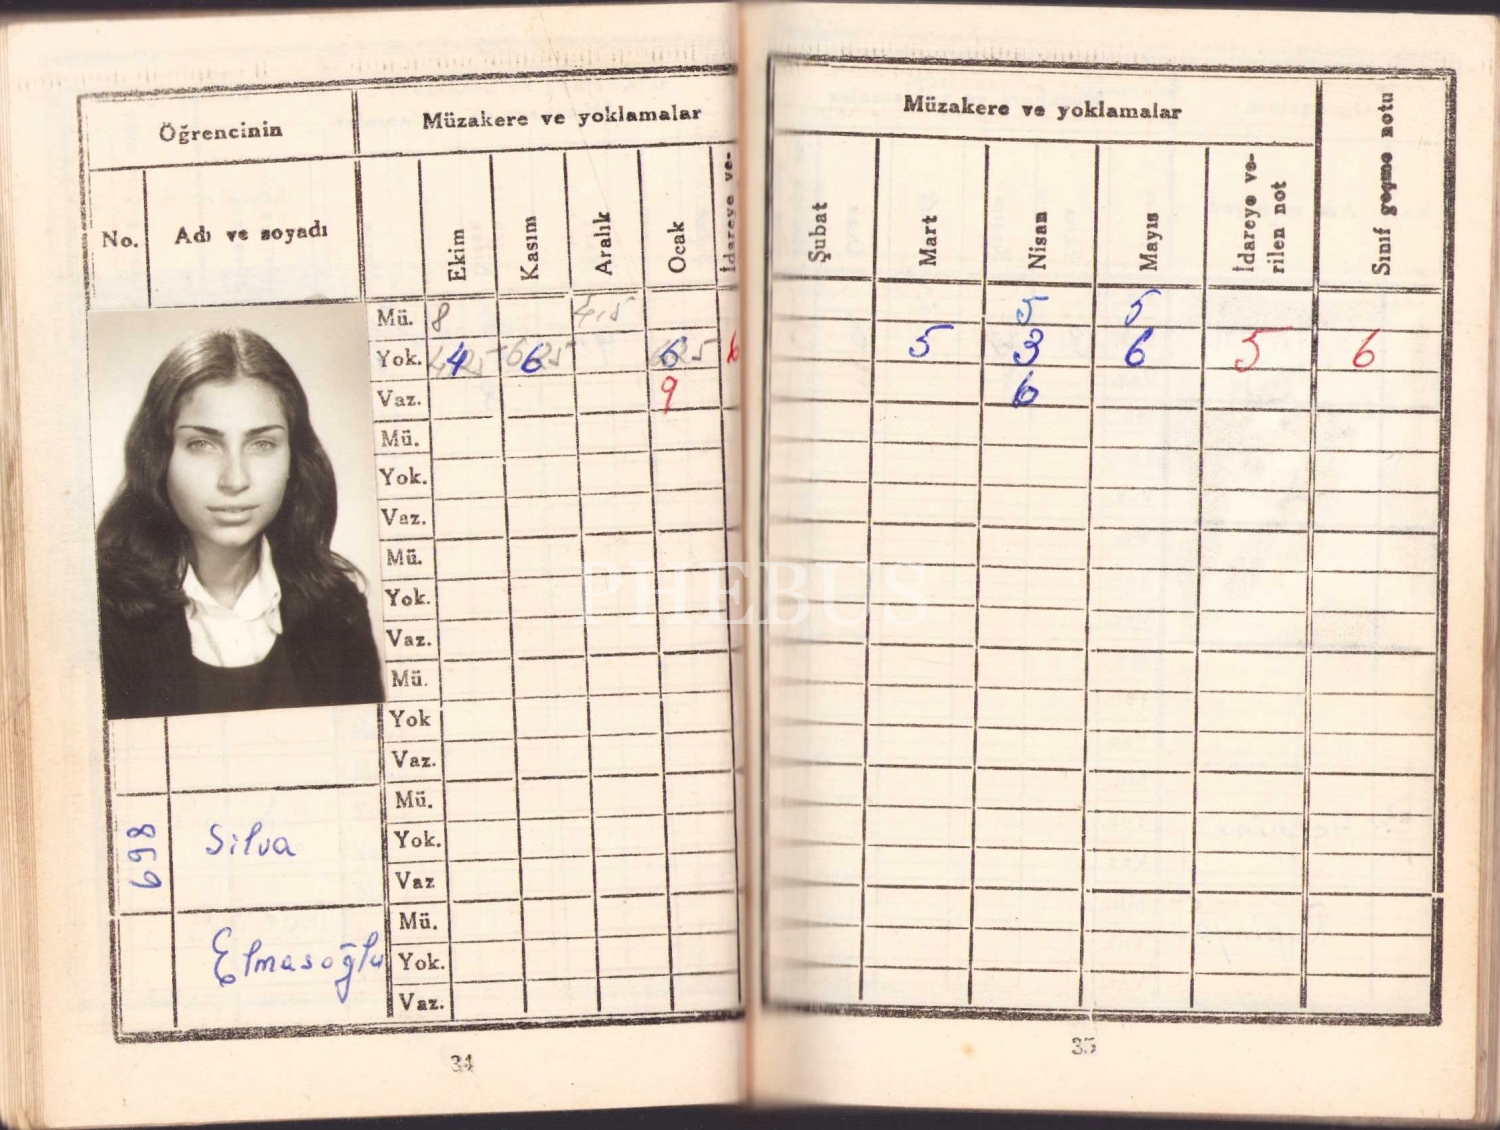 Öğrencinin
Müzakere ve yoklamalar
No.
Adı ve soyadı
Ekim
Kasım
Aralık
Ocak
İdareye ve-
Mü. 8 4,5
Yok. 4 6 6 6
Vaz. 9
Mü.
Yok.
Vaz.
Mü.
Yok.
Vaz.
Mü.
Yok
Vaz.
Mü.
Yok.
Vaz
Mü.
Yok.
Vaz.
698
Silva
Elmasoğlu
34
Müzakere ve yoklamalar
Şubat
Mart
Nisan
Mayıs
İdareye ve-
rilen not
Sınıf geçme notu
5 5
5 3 6 5 6
6
35
PHEBUS